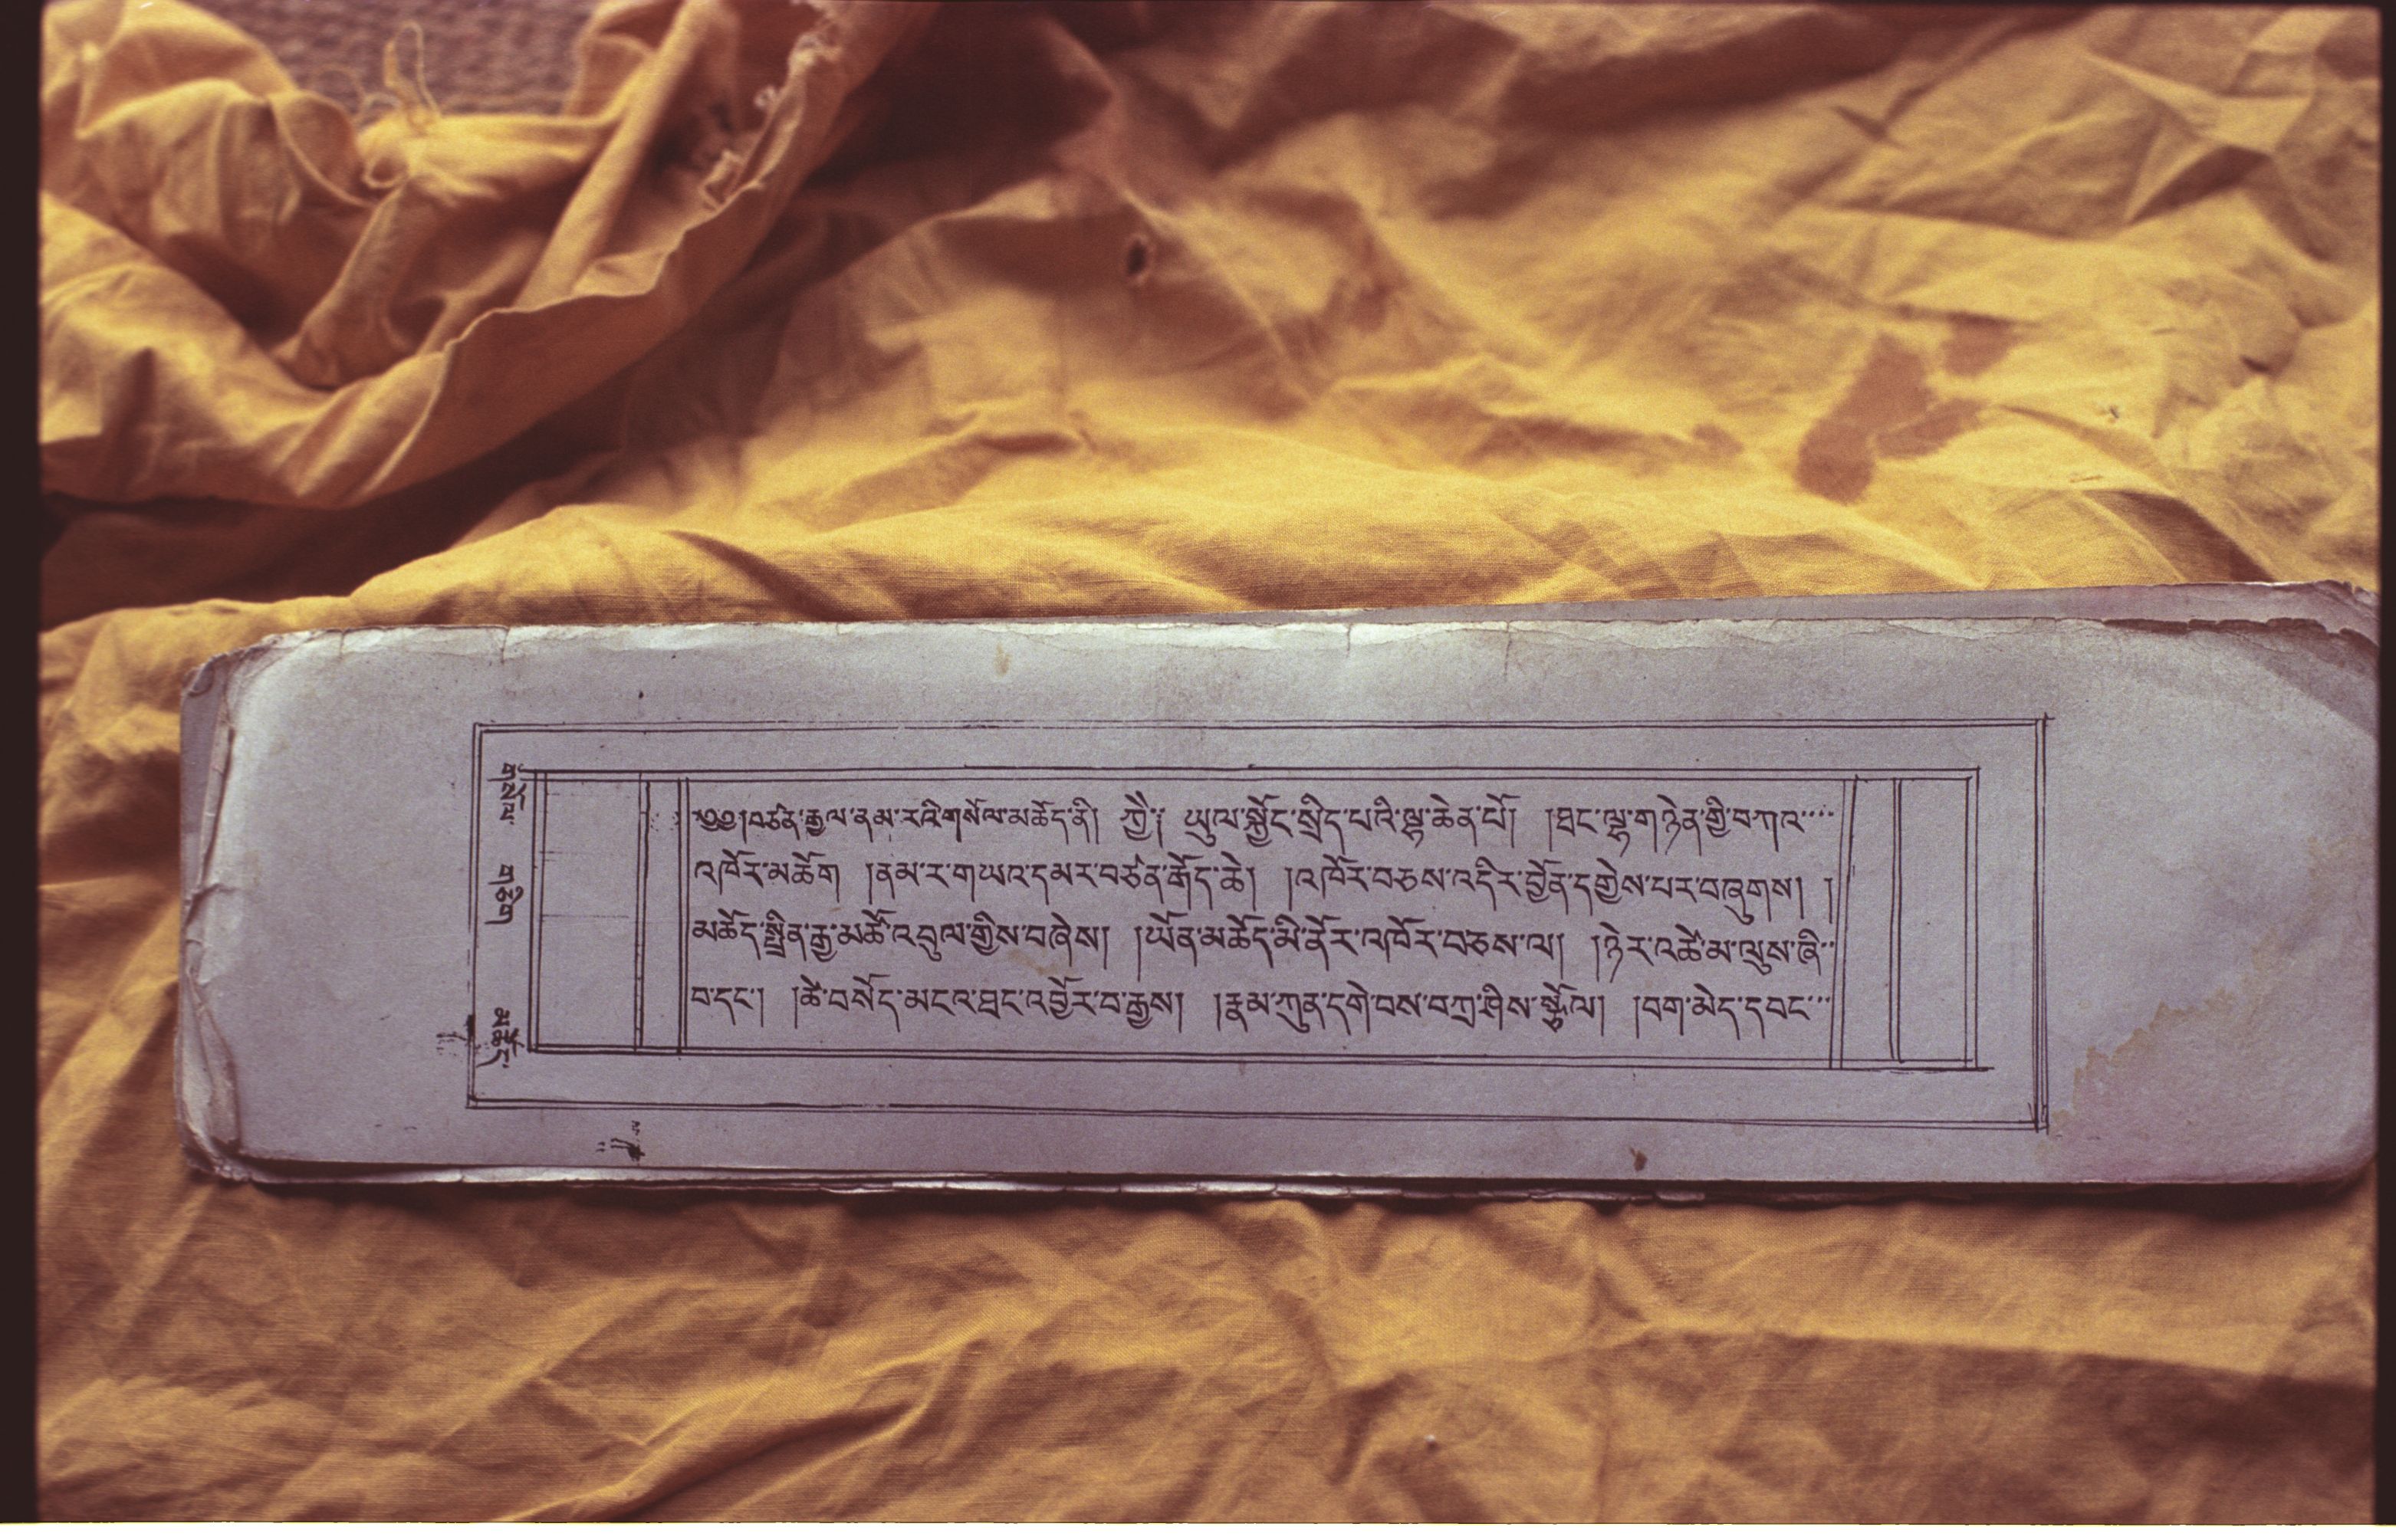 ༄༅།བཙན་རྒྱལ་ནམ་རའི་གསོལ་མཆོད་ནི། ཀྱེ༔ ཡུལ་སྐྱོང་སྲིད་པའི་ལྷ་ཆེན་པོ། །ཐང་ལྷ་གཉེན་གྱི་བཀའ་
འཁོར་མཆོག །ནམ་ར་གཡའ་དམར་བཙན་རྒོད་ཆེ། །འཁོར་བཅས་འདིར་བྱོན་དགྱེས་པར་བཞུགས། །
མཆོད་སྤྲིན་རྒྱ་མཚོ་འབུལ་གྱིས་བཞེས། །ཡོན་མཆོད་མི་ནོར་འཁོར་བཅས་ལ། །ཉེར་འཚེ་མ་ལུས་ཞི་
བ་དང་། །ཚེ་བསོད་མངའ་ཐང་འབྱོར་བ་རྒྱས། །རྣམ་ཀུན་དགེ་བས་བཀྲ་ཤིས་སྩོལ། །བག་མེད་དབང་
གཅིག